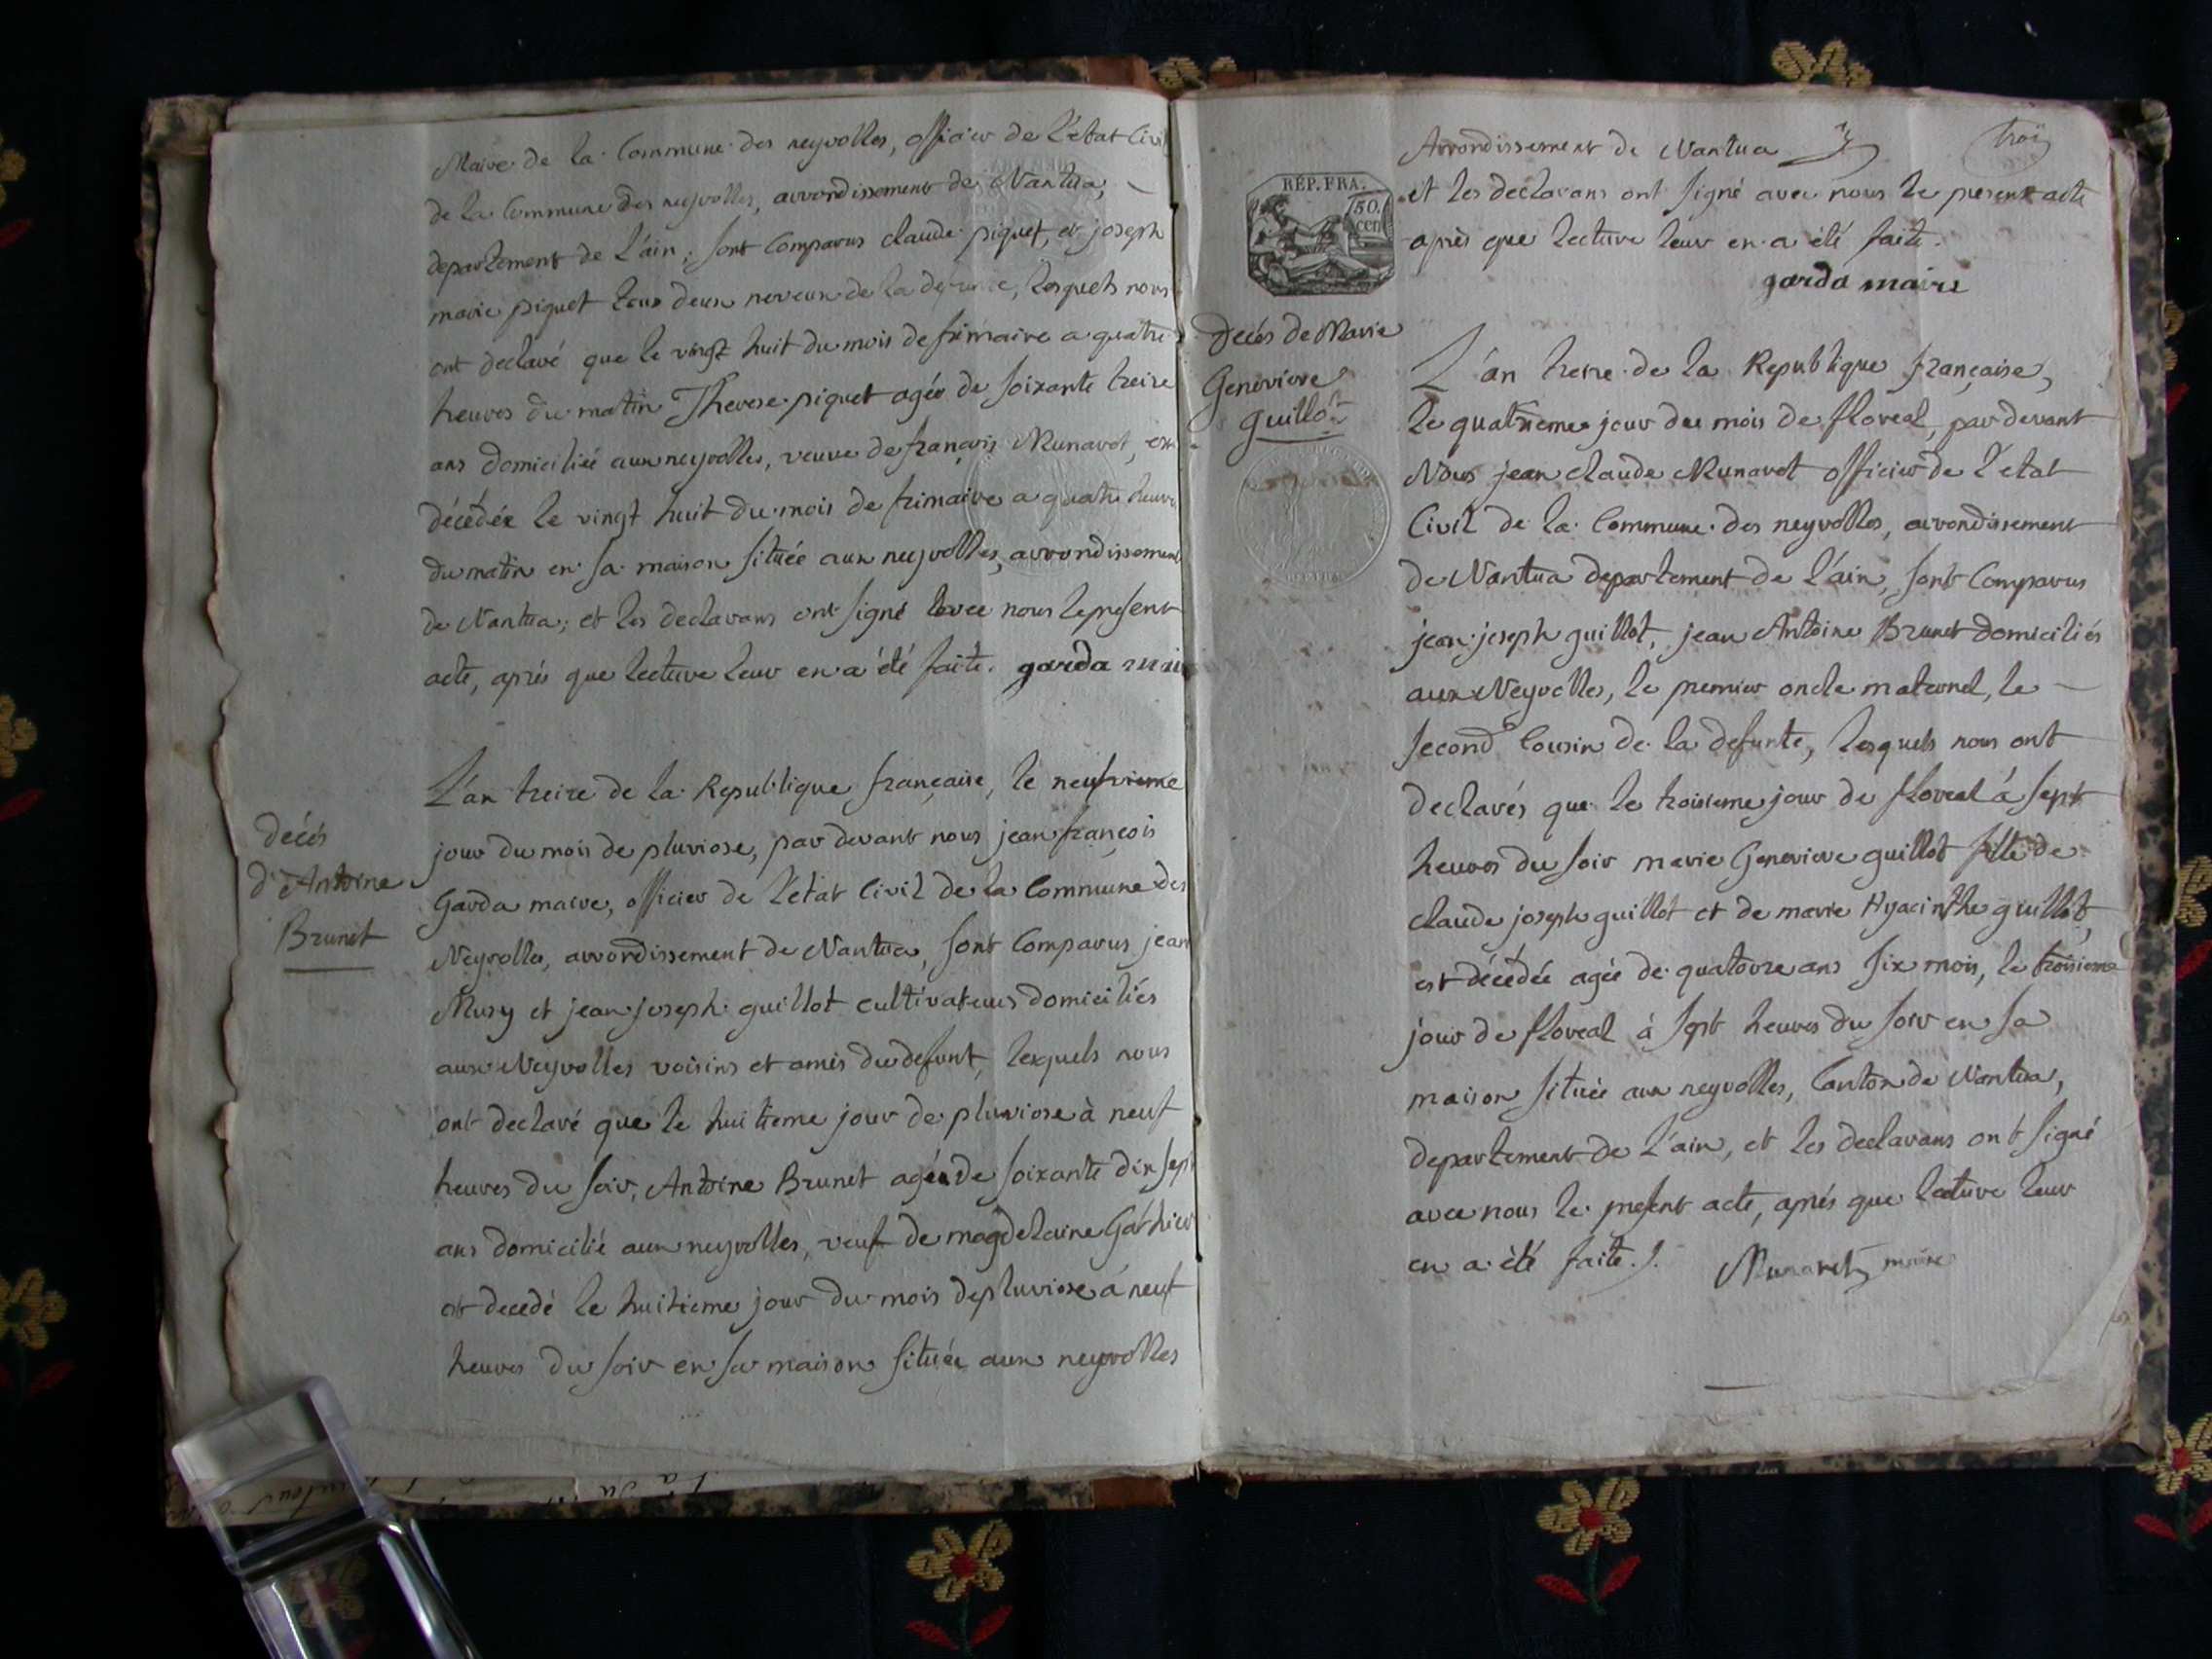 Maire de la Commune des neyrolles, officier de L'état Civil
de la Commune des neyrolles, arrondissement de Nantua,
departement de L'ain; sont Comparus claude piquet, et joseph
marie piquet tous deux neveux de la defunte, lesquels nous
ont declaré que le vingt huit du mois de frimaire a quatre
heures du matin Therese piquet agée de soixante treize
ans domiciliée aux neyrolles, veuve de françois Munaret, est
décédée le vingt huit du mois de frimaire a quatre heures
du matin en sa maison située aux neyrolles, arrondissement
de Nantua; et les declarans ont signé avec nous le present
acte, après que lecture leur en a été faite. garda maire
L'an treize de la Republique française, le neufvieme
jour du mois de pluviose, par devant nous jean françois
decés
d'Antoine
Brunet
Garda maire, officier de L'état Civil de la Commune des
Neyrolles, arrondissement de Nantua, sont Comparus jean
Mury et jean joseph guillot cultivateurs domiciliés
aux Neyrolles voisins et amis du defunt, lesquels nous
ont declaré que le huitieme jour de pluviose à neuf
heures du soir, Antoine Brunet agé de soixante dix sept
ans domicilié aux neyrolles, veuf de magdelaine
est decedé le huitieme jour du mois de pluviose à neuf
heures du soir en sa maison située aux neyrolles
troi
Arrondissement de Nantua
RÉP. FRA.
50.
cen
et les declarans ont signé avec nous le present acte
après que lecture leur en a été faite.
garda maire
Decés de Marie
Genevieve
guillot
L'an treize de la Republique française,
le quatrieme jour du mois de floreal, par devant
Nous jean claude Munaret officier de l'état
Civil de la Commune des neyrolles, arrondissement
de Nantua departement de L'ain, sont Comparus
jean joseph guillot, jean Antoine Brunet domiciliés
aux Neyrolles, le premier oncle maternel, le
second Cousin de la defunte, lesquels nous ont
declarés que le troisieme jour de floreal à sept
heures du soir marie Genevieve guillot fille de
claude joseph guillot et de marie Hyacinthe guillot,
est décédée agée de quatorze ans six mois, le troisieme
jour de floreal à sept heures du soir en sa
maison située aux neyrolles, Canton de Nantua,
departement de L'ain, et les declarans ont signé
avec nous le present acte, après que lecture leur
en a été faite.
Munaret maire